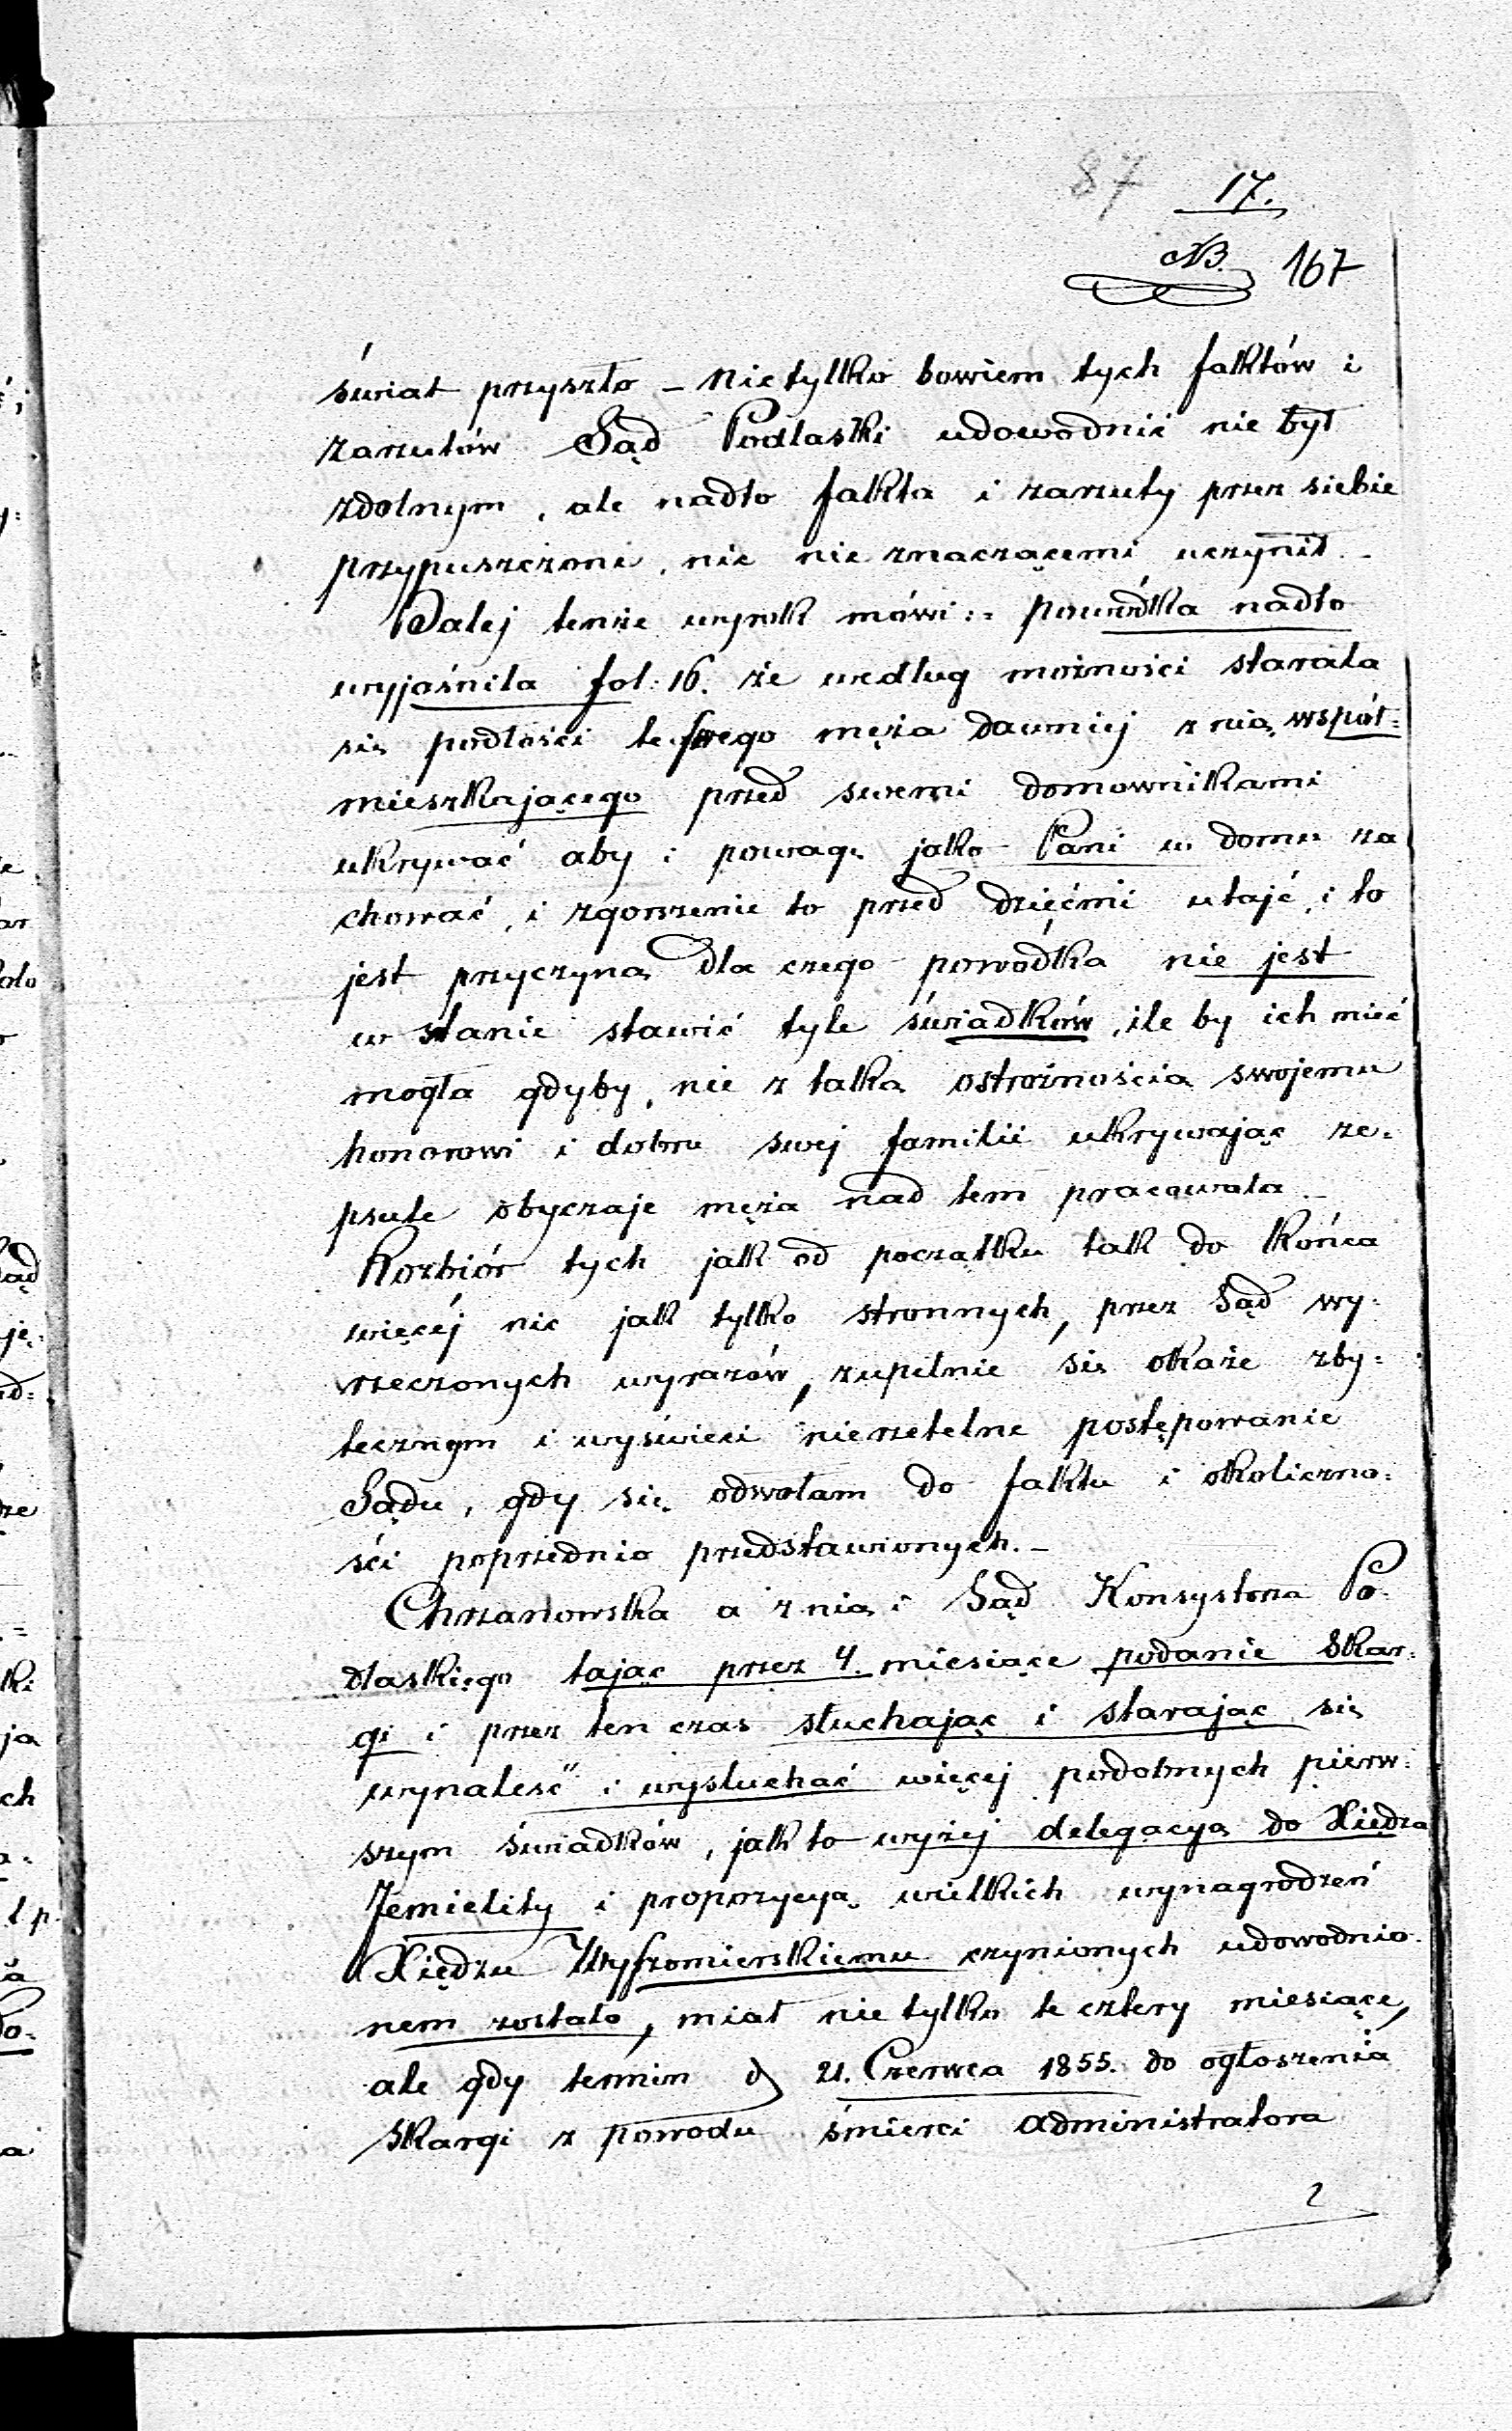 87 17.
NB. 167
świat przyszło – Nietylko bowiem tych faktów i
zarzutów Sąd Podlaski udowodnić nie był
zdolnym, ale nadto fakta i zarzuty przez siebie
przypuszczone, nic nie znaczącemi uczynił. –
Dalej tenże wyrok mówi:= powódka nadto
wyjaśniła fol: 16. że według możności starała
się podłości swego męża dawniej z nią współ=
mieszkającego przed swemi domownikami
ukrywać aby i powagę jako Pani w domu za
chować, i zgorszenie to przed dziećmi utaić, i to
jest przyczyną dla czego powodka nie jest
w stanie stawić tyle świadków, ile by ich mieć
mogła gdyby, nie z taką ostrożnością swojemu
honorowi i dobru swej familii ukrywając ze=
psute obyczaje męża nad tem pracowała –
Rozbiór tych jak od początku tak do końca
więcéj nic jak tylko stronnych, przez Sąd wy=
rzeczonych wyrazów, zupełnie się okaże zby=
tecznym i wyświeci nierzetelne postępowanie
Sądu, gdy się odwołam do faktu i okoliczno=
ści poprzednio przedstawionych. –
Chrzanowska a z nią i Sąd Konsystorza Po=
dlaskiego tając przez 4. miesiące podanie Skar=
gi i przez ten czas słuchając i starając się
wynaleść i wysłuchać więcej podobnych pierw=
szym świadków, jak to wyżej delegacyą do Xiędza
Jemielity i propozycyą wielkich wynagrodzeń
Xiędzu czynionych udowodnio=
nem zostało, miał nie tylko te cztery miesiące,
ale gdy termin d 21. Czerwca 1855. do ogłoszenia
Skargi z powodu śmierci Administratora